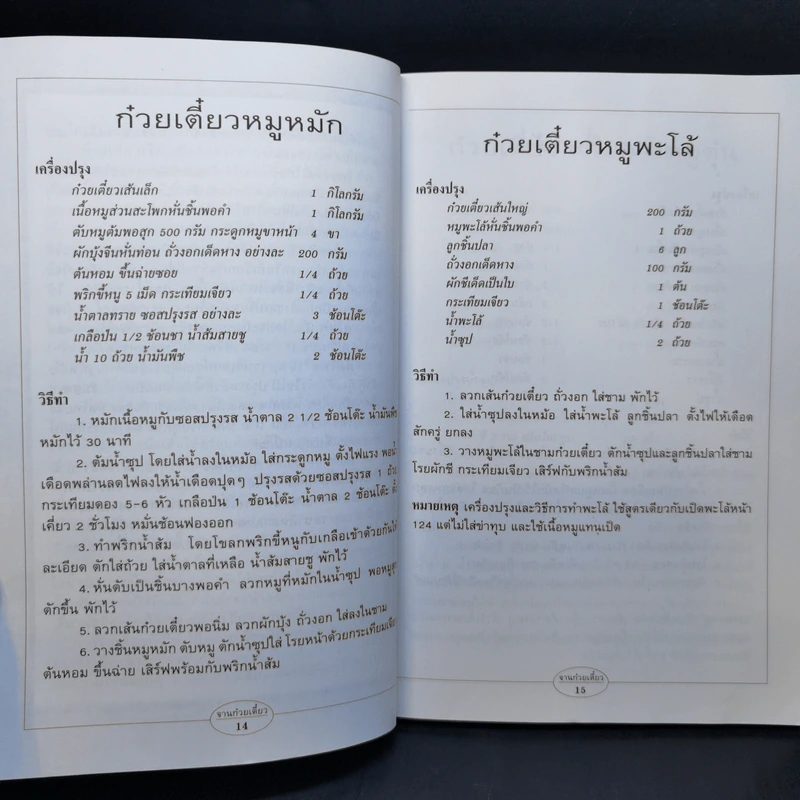 ก๋วยเตี๋ยวหมูหมัก
เครื่องปรุง
ก๋วยเตี๋ยวเส้นเล็ก 1 กิโลกรัม
เนื้อหมูส่วนสะโพกหั่นชิ้นพอคำ 1 กิโลกรัม
ตับหมูต้มพอสุก 500 กรัม กระดูกหมูขาหน้า 4 ขา
ผักบุ้งจีนหั่นท่อน ถั่วงอกเด็ดหาง อย่างละ 200 กรัม
ต้นหอม ขึ้นฉ่ายซอย 1/4 ถ้วย
พริกขี้หนู 5 เม็ด กระเทียมเจียว 1/4 ถ้วย
น้ำตาลทราย ซอสปรุงรส อย่างละ 3 ช้อนโต๊ะ
เกลือป่น 1/2 ช้อนชา น้ำส้มสายชู 1/4 ถ้วย
น้ำ 10 ถ้วย น้ำมันพืช 2 ช้อนโต๊ะ
วิธีทำ
1. หมักเนื้อหมูกับซอสปรุงรส น้ำตาล 2 1/2 ช้อนโต๊ะ น้ำมันพืช
หมักไว้ 30 นาที
2. ต้มน้ำซุป โดยใส่น้ำลงในหม้อ ใส่กระดูกหมู ตั้งไฟแรง พอน้ำ
เดือดพล่านลดไฟลงให้น้ำเดือดปุดๆ ปรุงรสด้วยซอสปรุงรส 1 ถ้วย
กระเทียมดอง 5-6 หัว เกลือป่น 1 ช้อนโต๊ะ น้ำตาล 2 ช้อนโต๊ะ
เคี่ยว 2 ชั่วโมง หมั่นช้อนฟองออก
3. ทำพริกน้ำส้ม โดยโขลกพริกขี้หนูกับเกลือเข้าด้วยกันให้
ละเอียด ตักใส่ถ้วย ใส่น้ำตาลที่เหลือ น้ำส้มสายชู พักไว้
4. หั่นตับเป็นชิ้นบางพอคำ ลวกหมูที่หมักในน้ำซุป พอหมูสุก
ตักขึ้น พักไว้
5. ลวกเส้นก๋วยเตี๋ยวพอนิ่ม ลวกผักบุ้ง ถั่วงอก ใส่ลงในชาม
6. วางชิ้นหมูหมัก ตับหมู ตักน้ำซุปใส่ โรยหน้าด้วยกระเทียมเจียว
ต้นหอม ขึ้นฉ่าย เสิร์ฟพร้อมกับพริกน้ำส้ม
จานก๋วยเตี๋ยว
14
ก๋วยเตี๋ยวหมูพะโล้
เครื่องปรุง
ก๋วยเตี๋ยวเส้นใหญ่ 200 กรัม
หมูพะโล้หั่นชิ้นพอคำ 1 ถ้วย
ลูกชิ้นปลา 6 ลูก
ถั่วงอกเด็ดหาง 100 กรัม
ผักชีเด็ดเป็นใบ 1 ต้น
กระเทียมเจียว 1 ช้อนโต๊ะ
น้ำพะโล้ 1/4 ถ้วย
น้ำซุป 2 ถ้วย
วิธีทำ
1. ลวกเส้นก๋วยเตี๋ยว ถั่วงอก ใส่ชาม พักไว้
2. ใส่น้ำซุปลงในหม้อ ใส่น้ำพะโล้ ลูกชิ้นปลา ตั้งไฟให้เดือด
สักครู่ ยกลง
3. วางหมูพะโล้ในชามก๋วยเตี๋ยว ตักน้ำซุปและลูกชิ้นปลาใส่ชาม
โรยผักชี กระเทียมเจียว เสิร์ฟกับพริกน้ำส้ม
หมายเหตุ เครื่องปรุงและวิธีการทำพะโล้ ใช้สูตรเดียวกับเป็ดพะโล้หน้า
124 แต่ไม่ใส่ข่าทุบ และใช้เนื้อหมูแทนเป็ด
จานก๋วยเตี๋ยว
15